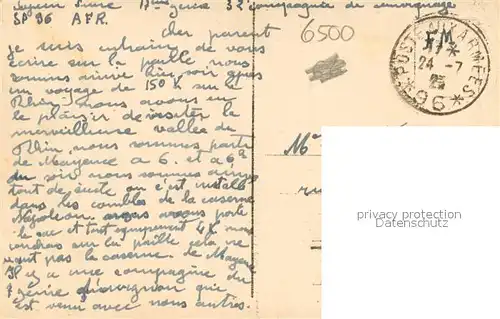 SP 96 AFR.
6500
cher parent
je suis entrain de vous
écrire sur la paille nous
sommes arrivé hier soir après
un voyage de 150 k sur le
Rhin, nous avons eu
le plaisir de visiter la
merveilleuse vallée du
Rhin nous sommes parti
de Mayence a 6. et a 6h
du soir nous sommes arrivé
tout de suite on c'est installé
dans les combles de la caserne
Napoléon nous avons porté
le sac et tout
sur la paille cela ne
vaut pas la caserne de Mayence
Il y a une compagnie du
7 ieme qui
est venu avec nous autres.
POSTE AUX ARMÉES
F.M.
24 -7
25
*96*
M
privacy protection
Datenschutz